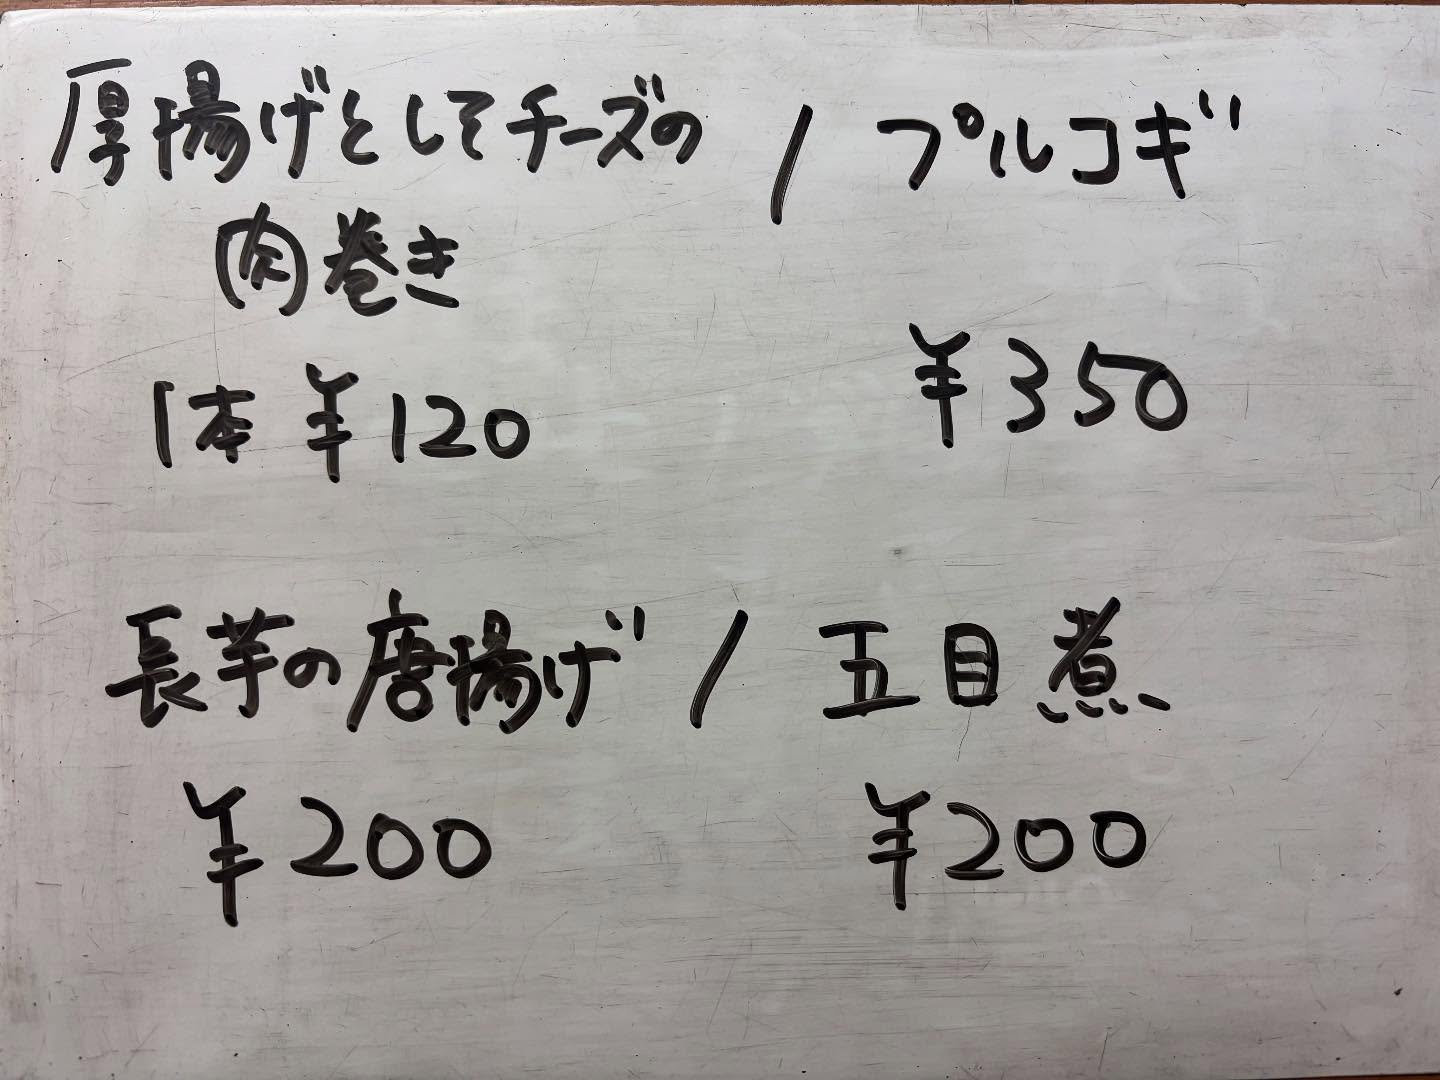 厚揚げとしそチーズの / プルコギ
肉巻き
1本 ¥120
¥350
長芋の唐揚げ / 五目煮
¥200
¥200